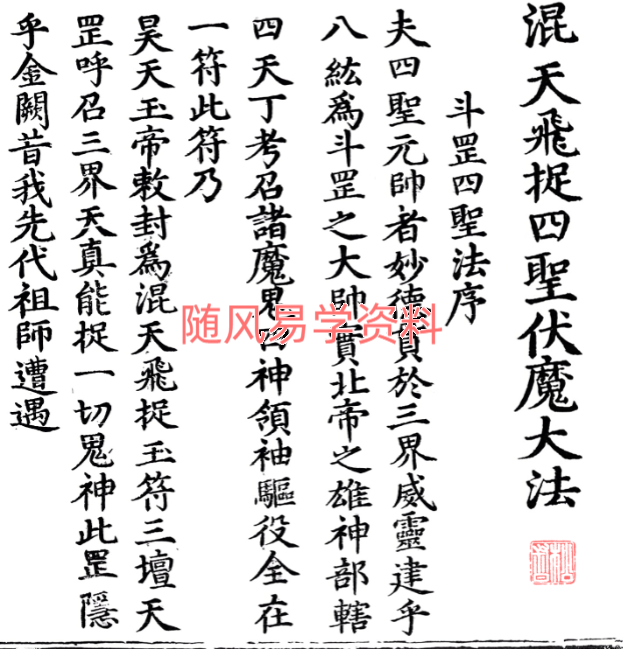 混天飛捉四聖伏魔大法
斗罡四聖法序
夫四聖元帥者妙德貫於三界威靈建乎
八紘為斗罡之大帥實北帝之雄神部轄
四天丁考召諸魔鬼神領袖驅役全在
一符此符乃
昊天玉帝敕封為混天飛捉玉符三壇天
罡呼召三界天真能捉一切鬼神此罡隱
乎金闕昔我先代祖師遭遇
随风易学资料